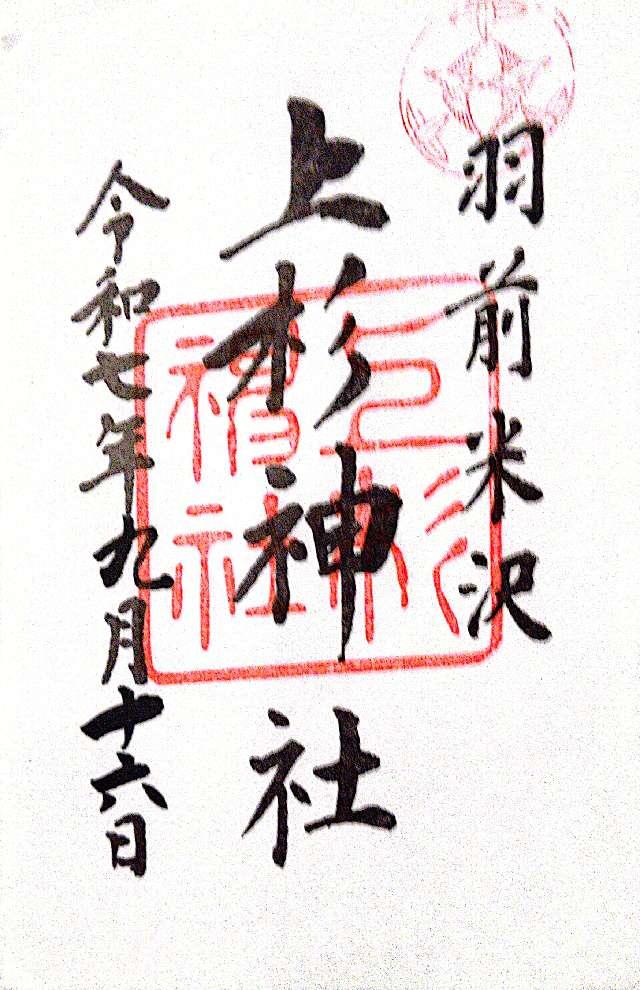 羽前米沢
上杉神社
令和七年九月十六日
上杉神社